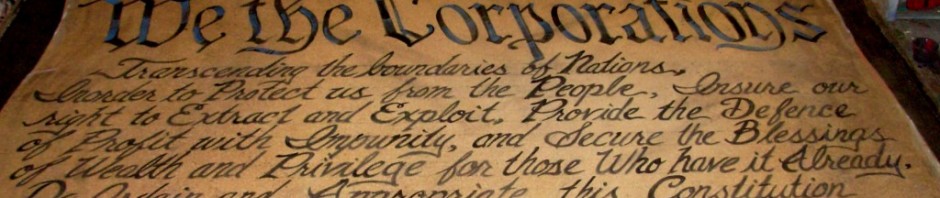 We the Corporations
Transcending the boundaries of Nations,
Inorder to Protect us from the People, Insure our
right to Extract and Exploit, Provide the Defence
of Profit with Impunity, and Secure the Blessings
of Wealth and Privilege for those Who have it Already.
Do Ordain and Appropriate this Constitution